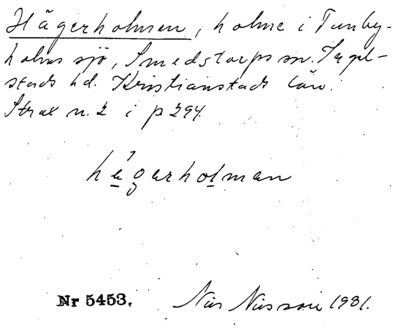 Hägerholmen, holme i Tunby-
holms sjö, Smedstorps sn. Ingel-
stads hd. Kristianstads län.
Strax n. 2 i p 294.
hägerholman
Nr 5453.
Nils Nilsson 1931.